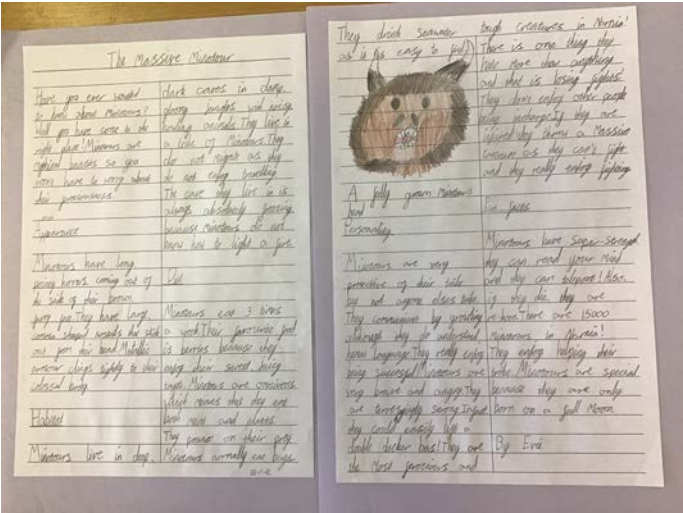 The Massive Minotour
Have you ever wanted
to know about Minotours?
Well you have come to the
right place! Minotours are
mythical beasts so you
won't have to worry about
their preciousness.
Appearance
Minotours have long,
horns coming out of
the side of their brown,
furry face. They have large,
that stick
out from their head. Metallic
armour clings tightly to their
colossal body.
Habitat
Minotours live in deep,
dark caves in damp,
gloomy jungles with noisy
howling animals. They live in
a tribe of Minotours. They
do not migrate as they
do not enjoy travelling.
The cave they live in is
always absolutely freezing
because minotours do not
know how to light a fire.
Diet
Minotours eat 3 times
a week. Their favourite food
is berries because they
enjoy their sweet, juicy
taste. Minotours are omnivores
which means that they eat
both meat and plants.
They pounce on their prey.
Minotours normally eat bugs.
They drink seawater
as it is easy to find.
A fully grown minotours
head
Personality
Minotours are very
protective of their tribe
but not anyone elses tribe.
They communicate by growling
although they do understand
human language. They really enjoy
being successful! Minotours are
very brave and angry. They
are terrifyingly strong. In fact
they could easily lift a
double decker bus! They are
the most ferocious and
tough creatures in Narnia!
There is one thing they
hate more than anything
and that is losing fights!
They don't enjoy other people
being in charge. If they are
injured they throw a massive
tantrum as they can't fight
and they really enjoy fighting.
Fun facts
Minotours have super-strength,
they can read your mind
and they can teleport! Also,
if they die, they are
re born. There are 15000
minotours in Narnia!
They enjoy helping their
tribe. Minotours are special
because they are only
born on a full Moon.
By Evie